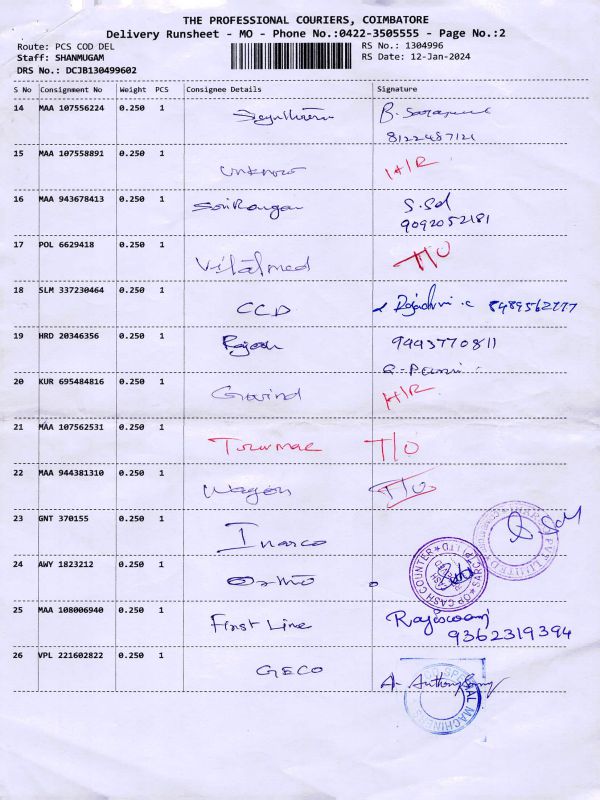 THE PROFESSIONAL COURIERS, COIMBATORE
Delivery Runsheet - MO - Phone No.:0422-3505555 - Page No.:2
Route: PCS COD DEL
RS No.: 1304996
Staff: SHANMUGAM
RS Date: 12-Jan-2024
DRS No.: DCJB130499602
S No Consignment No Weight PCS Consignee Details Signature
14 MAA 107556224 0.250 1
8122487121
15 MAA 107558891 0.250 1 H/R
16 MAA 943678413 0.250 1 S.Sd
9092052181
17 POL 6629418 0.250 1 T/O
Vitalmed
18 SLM 337230464 0.250 1
CCD
19 HRD 20346356 0.250 1 9443770811
20 KUR 695484816 0.250 1 Govind H/R
21 MAA 107562531 0.250 1
T/O
22 MAA 944381310 0.250 1
Wagen T/O
23 GNT 370155 0.250 1
Inarco
24 AWY 1823212 0.250 1
Ortho
OP CASH COUNTER
25 MAA 108006940 0.250 1
First Line
9362319394
26 VPL 221602822 0.250 1
GECO
A. Anthony
SPECIAL MACHINES